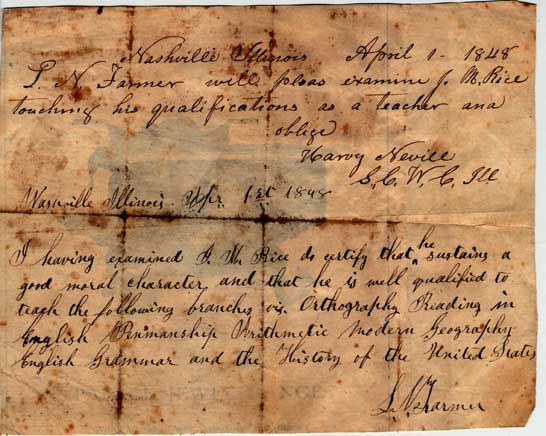 Nashville Illinois April 1 - 1848
L. N Farmer will pleas examine J. M. Rice
touching his qualifications as a teacher and
oblige
Harvy Nevill
S. C. W. C. Ill
Nashville Illinois Apr. 1st 1848
I having examined J. M. Rice do certify that he sustains a
good moral character and that he is well qualified to
teach the following branches vis. Orthography Reading in
English Penmanship Arithmetic modern Geography
English Grammar and the History of the United States
L. N. Farmer